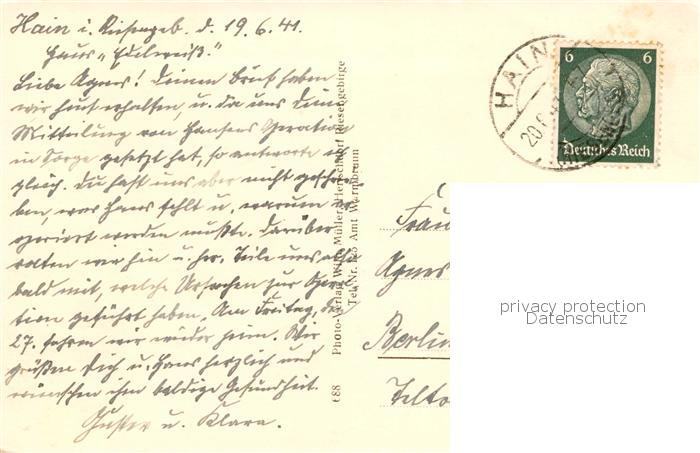 Hain i. Riesengeb. d. 19.6.41.
Haus "Edelweiß."
Liebe Agnes! Deinen Brief haben
wir heut erhalten, u. da uns Deine
Mitteilung von Hansens Operation
in Sorge gesetzt hat, so antworte ich
gleich. Du hast uns aber nicht geschrie-
ben, was Hans fehlt u. warum er
operiert werden mußte. Darüber
raten wir hin u. her. Teile uns also
bald mit, welche Ursachen zur Opera-
tion geführt haben. Am Freitag, den
27. fahren wir wieder heim. Wir
grüßen Dich u. Hans herzlich und
wünschen ihm baldige Gesundheit.
Gustav u. Klara.
688 Photo-Verlag Willy Müller, Herischdorf Riesengebirge
Tel. Nr. Amt Warmbrunn
HAIN
20.6.41
6 6
Deutsches Reich
Frau
Agnes
Berlin
Telto
privacy protection
Datenschutz